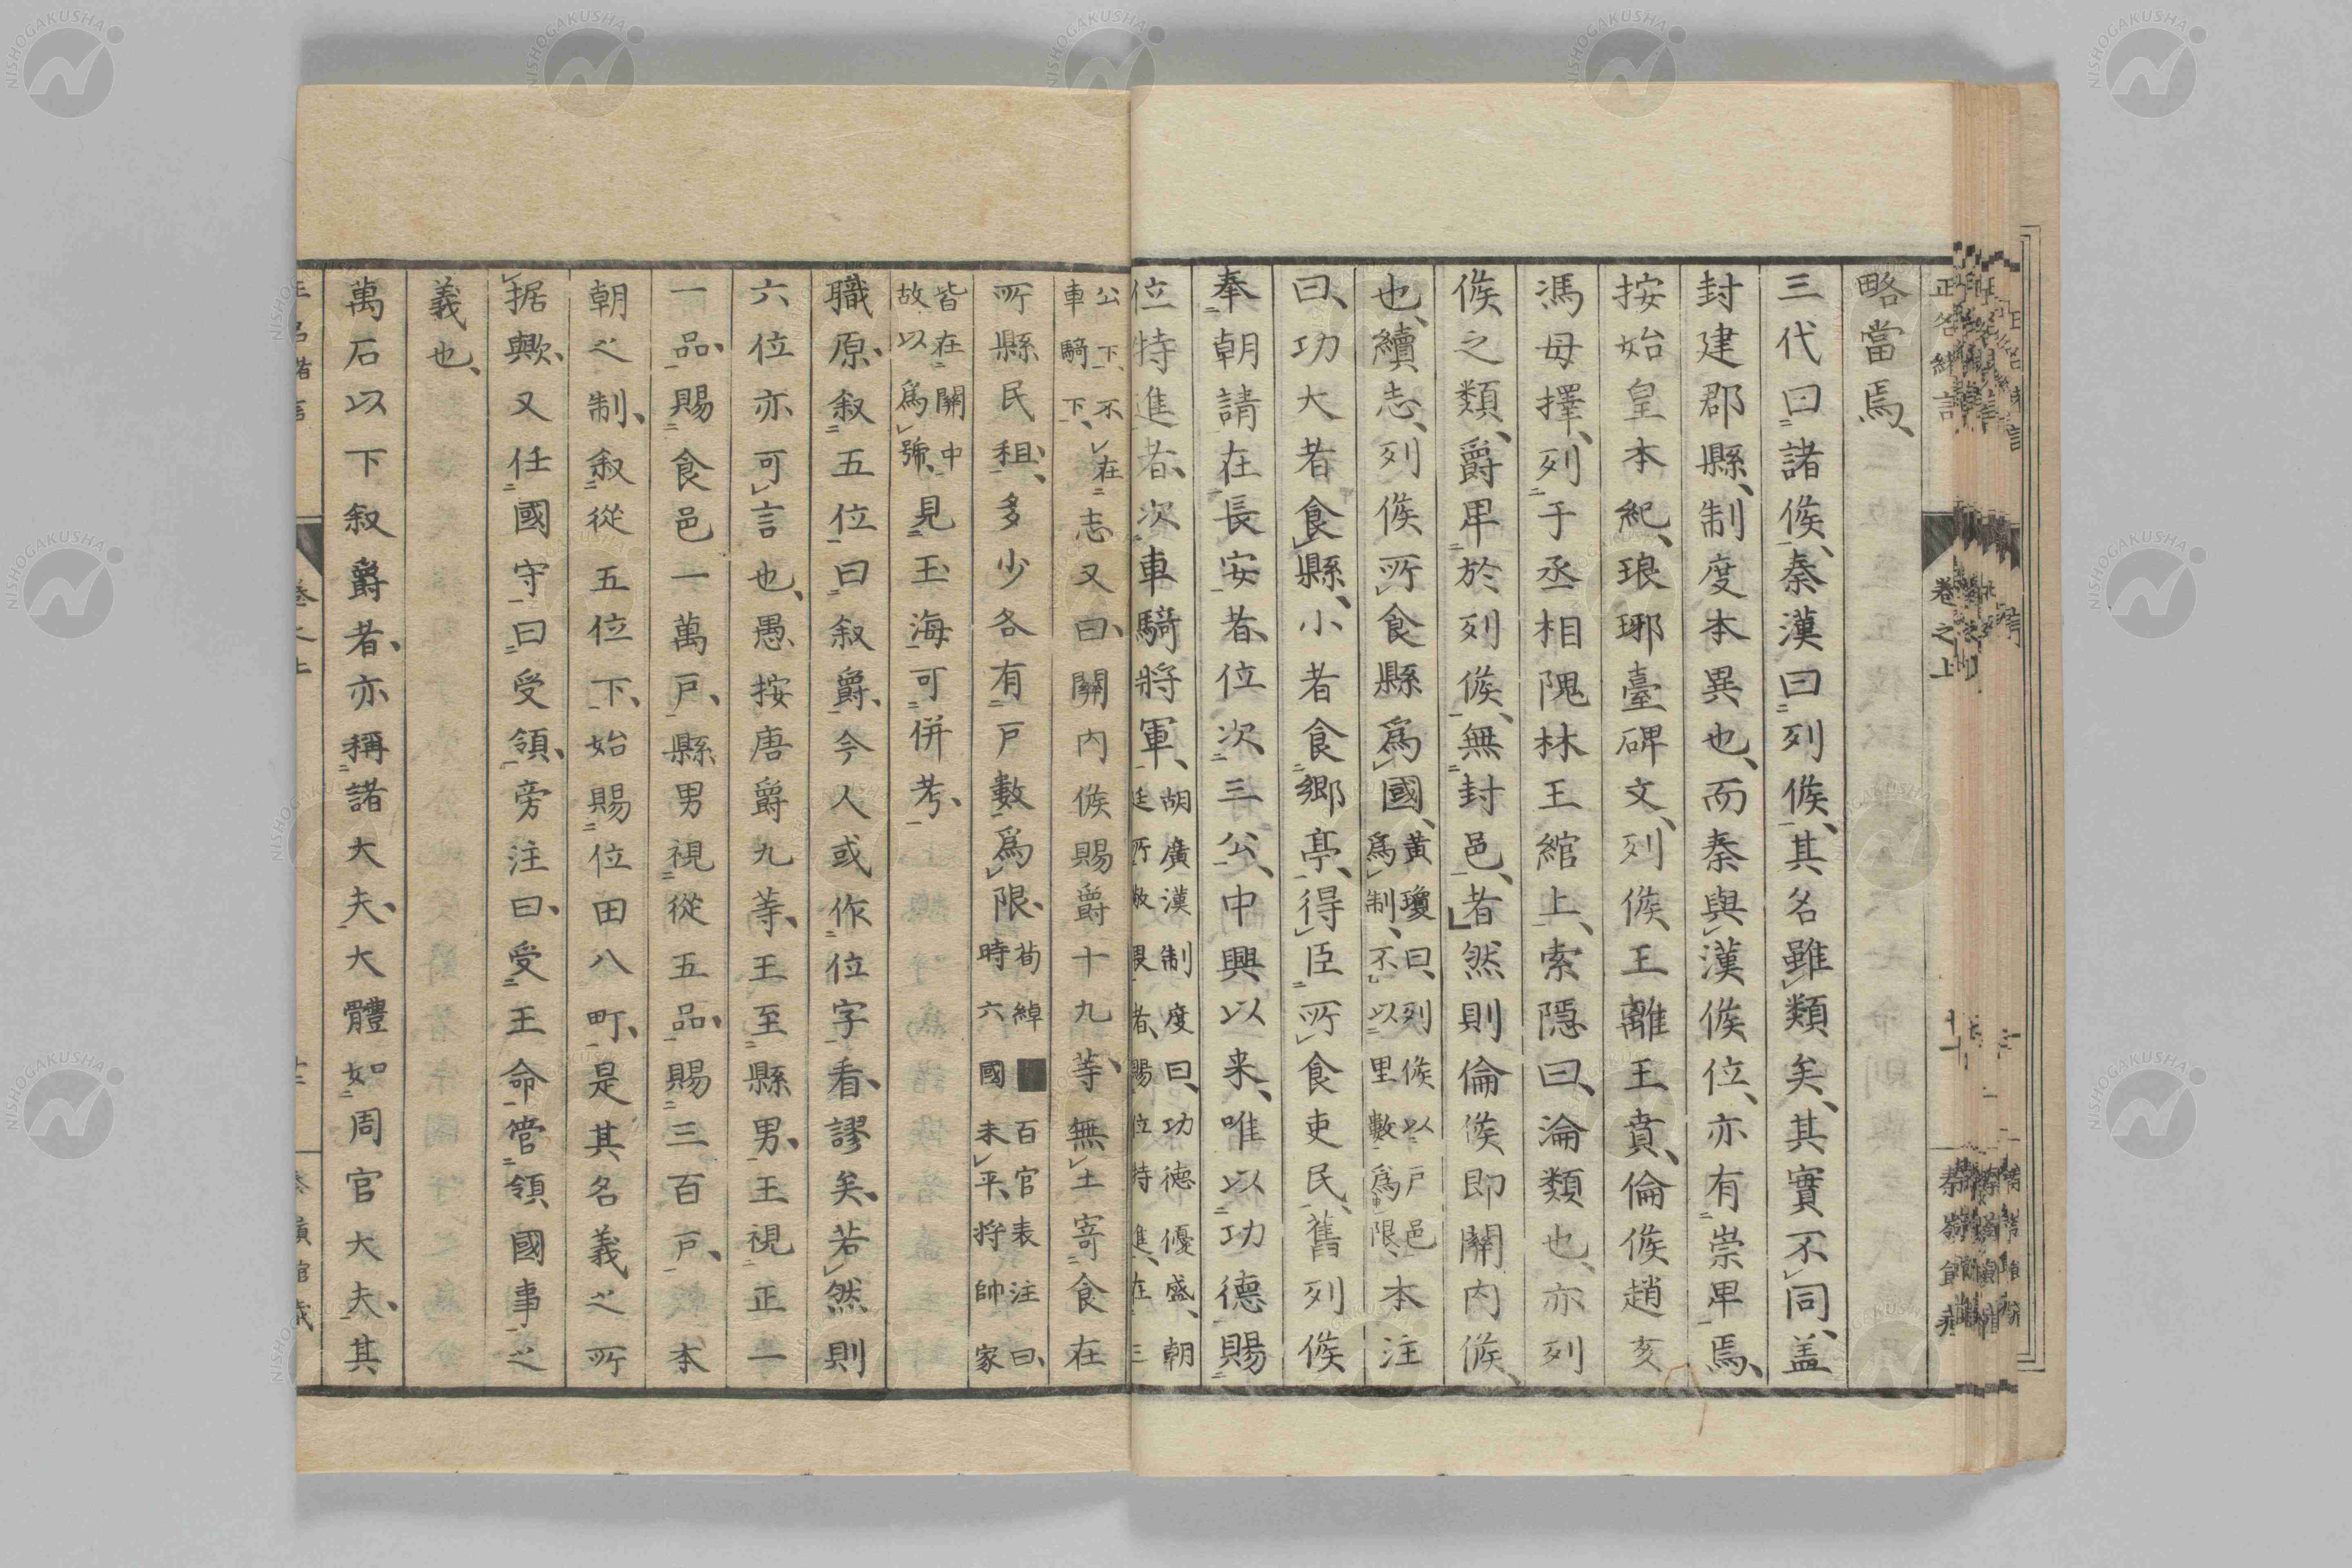 略當焉、
三代曰諸侯、秦漢曰列侯、其名雖類矣、其實不同、盖
封建郡縣、制度本異也、而秦與漢侯位、亦有崇卑焉、
按始皇本紀、琅琊臺碑文、列侯王離王賁、倫侯趙亥
馮毋擇、列于丞相隗林王綰上、索隱曰、淪類也、亦列
侯之類、爵卑於列侯、無封邑、者然則倫侯即關内侯、
也、續志、列侯所食縣爲國、黃瓊曰、列侯以戸邑爲制、不以里數爲限、本注
曰、功大者食縣、小者食鄉亭、得臣所食吏民、舊列侯
奉朝請在長安者、位次三公、中興以来、唯以功德賜
位特進者、次車騎將軍、胡廣漢制度曰、功德優盛、朝廷所敬異者、賜位特進、在三
公下、不在車騎下、志又曰、關内侯賜爵十九等、無土寄食在
所縣民租、多少各有戸數爲限、荀綽■百官表注曰、時六國未平、將帥家
皆在關中故以爲號、見玉海可併考、
職原、叙五位曰叙爵、今人或作位字看、謬矣、若然則
六位亦可言也、愚按唐爵九等、王至縣男、王視正一
一品、賜食邑一萬戸、縣男視從五品、賜三百戸、本
朝之制、叙從五位下、始賜位田八町、是其名義之所
据歟、又任國守曰受領、旁注曰、受王命管領國事之
義也、
萬石以下叙爵者、亦稱諸大夫、大體如周官大夫、其
正名緒言 卷之上 十一
NISHOGAKUSHA